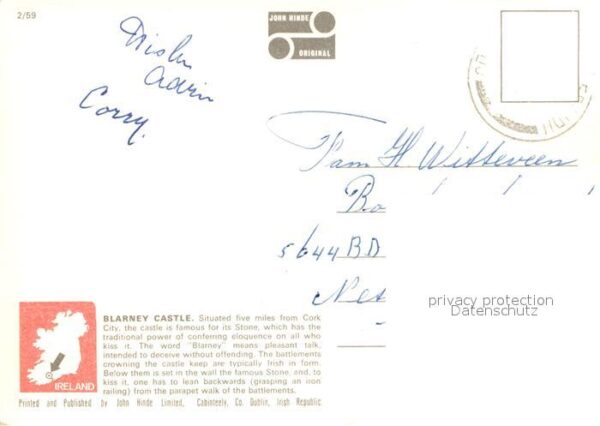 2/59
JOHN HINDE
ORIGINAL
Corry.
Fam H Witteveen
Bo
5644BD
Net
privacy protection
Datenschutz
BLARNEY CASTLE. Situated five miles from Cork
City, the castle is famous for its Stone, which has the
traditional power of conferring eloquence on all who
kiss it. The word "Blarney" means pleasant talk,
intended to deceive without offending. The battlements
crowning the castle keep are typically Irish in form.
Below them is set in the wall the famous Stone, and, to
kiss it, one has to lean backwards (grasping an iron
railing) from the parapet walk of the battlements.
IRELAND
Printed and Published by John Hinde Limited, Cabinteely, Co. Dublin, Irish Republic